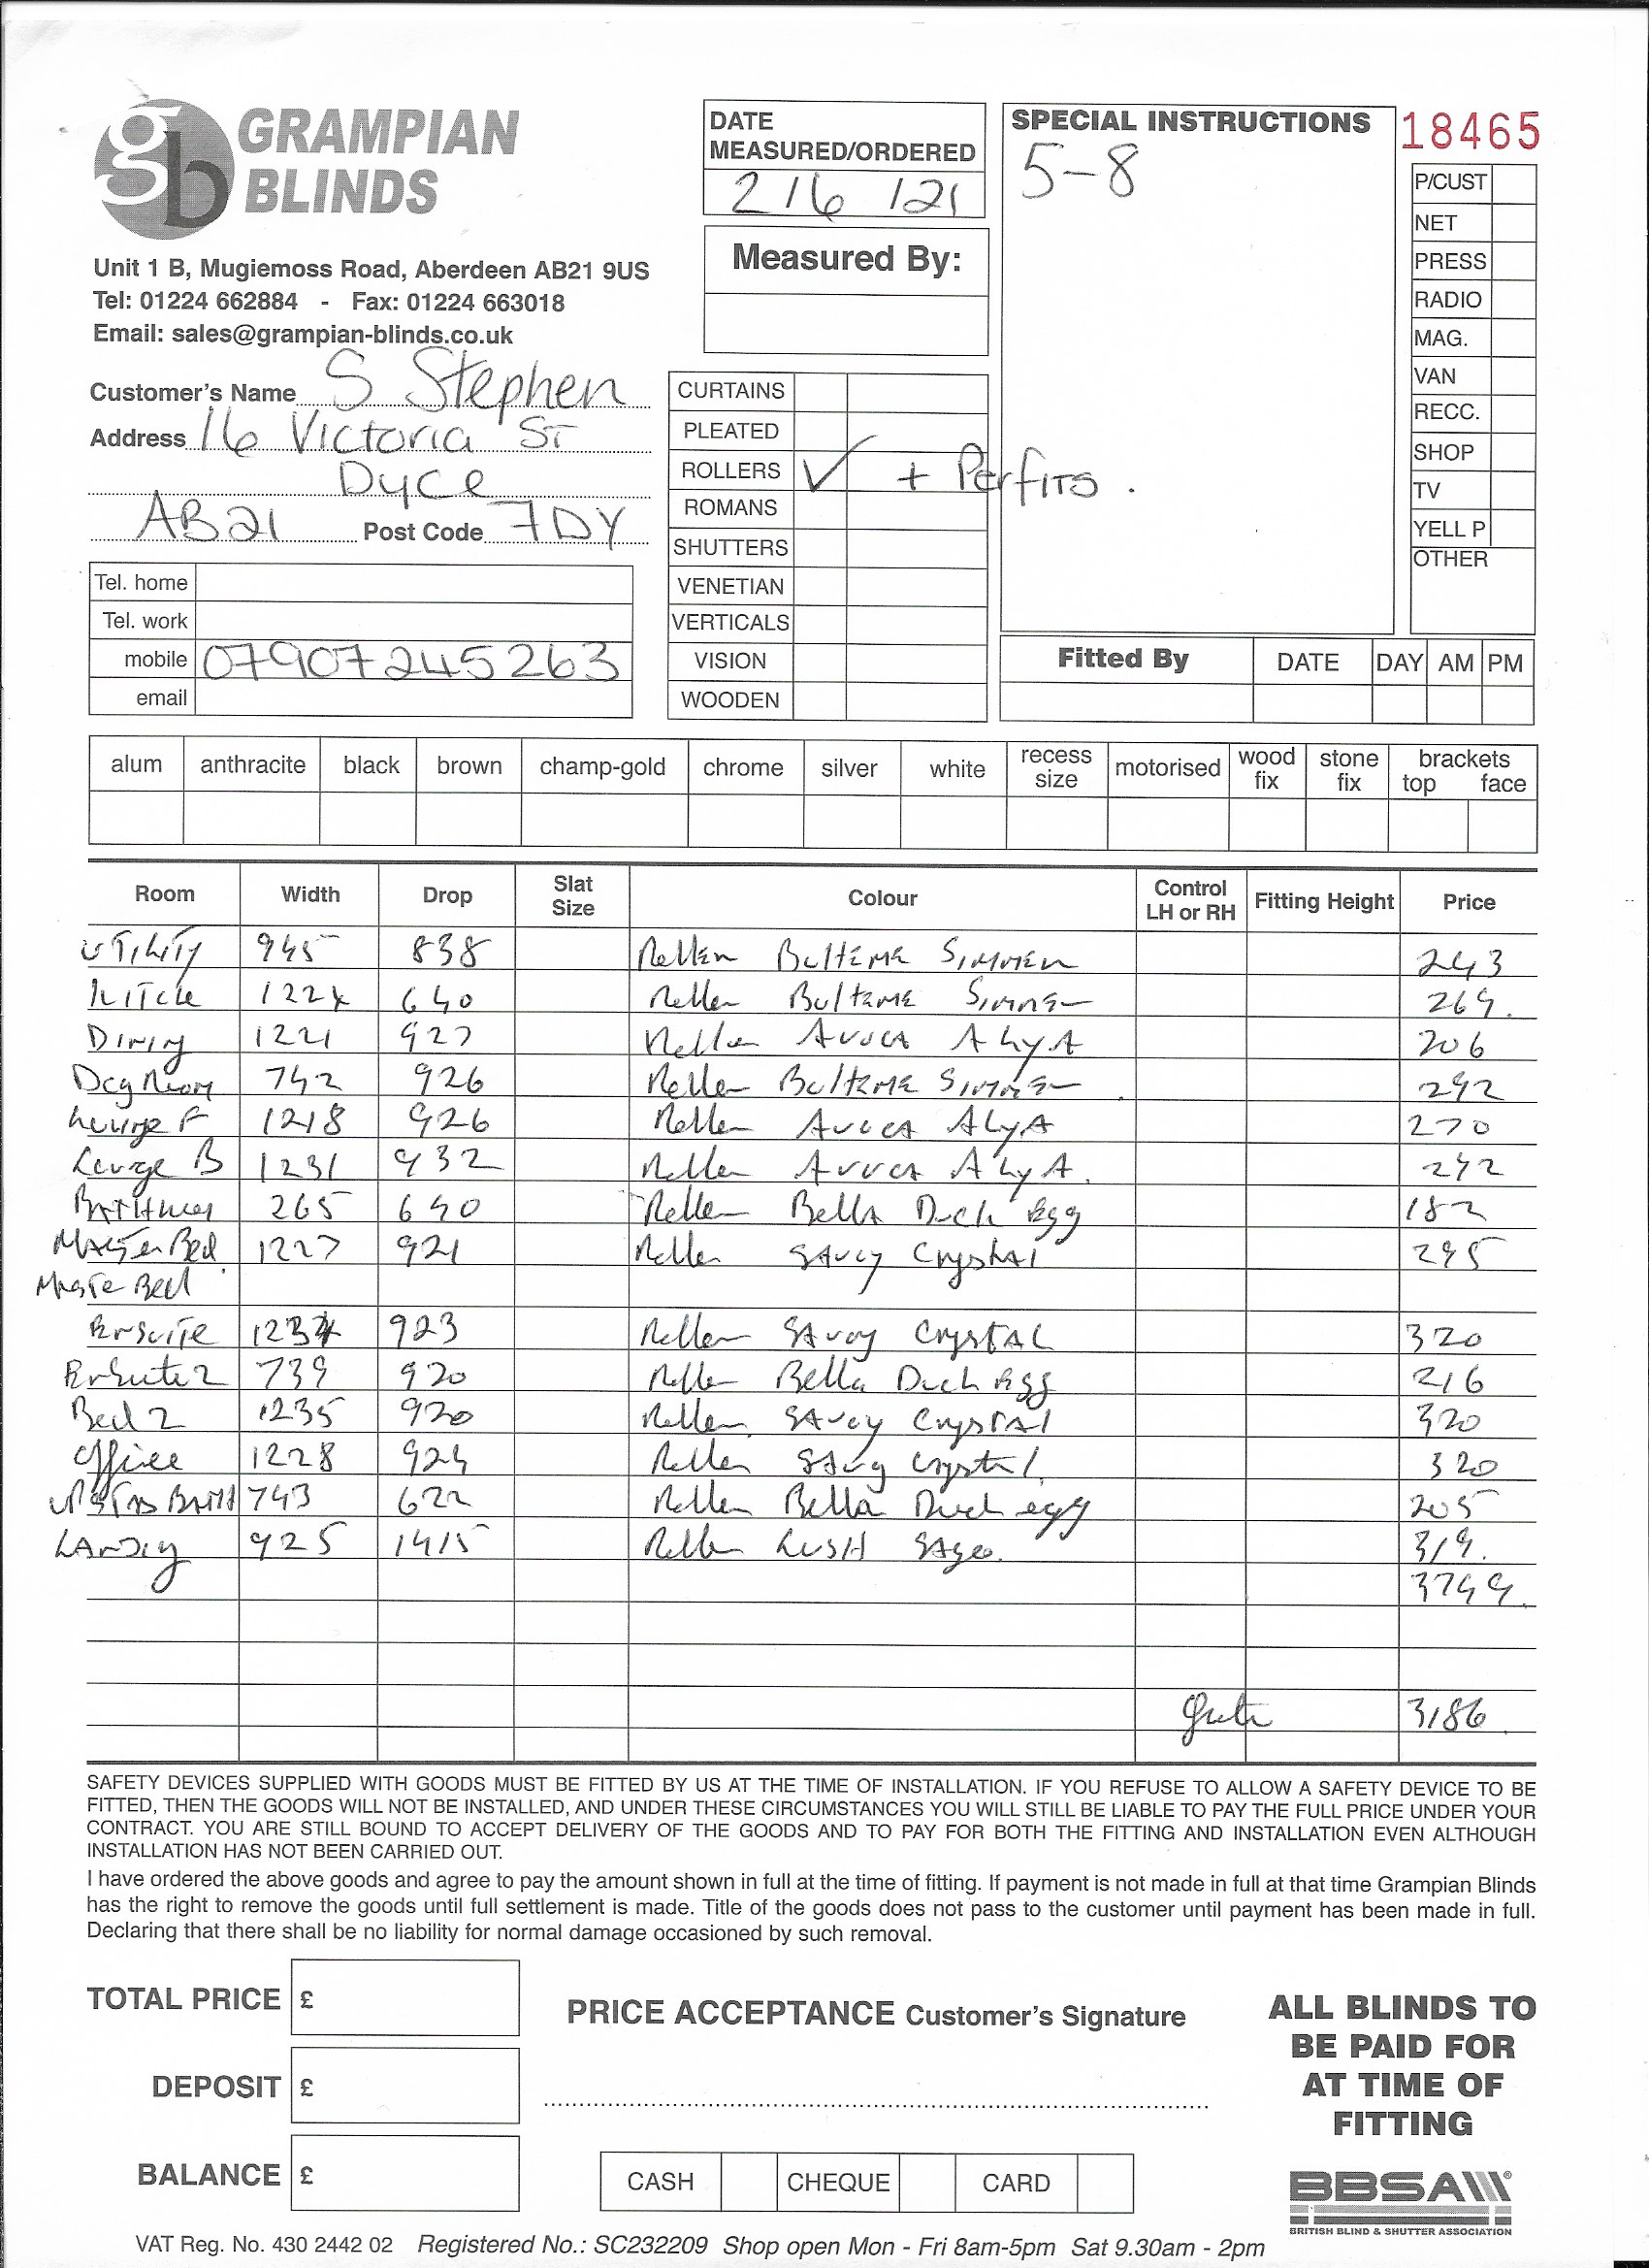 gb GRAMPIAN BLINDS
Unit 1 B, Mugiemoss Road, Aberdeen AB21 9US
Tel: 01224 662884 - Fax: 01224 663018
Email: sales@grampian-blinds.co.uk
DATE MEASURED/ORDERED
2/6/21
Measured By:
SPECIAL INSTRUCTIONS
5-8
18465
P/CUST
NET
PRESS
RADIO
MAG.
VAN
RECC.
SHOP
TV
YELL P
OTHER
Customer's Name S Stephen
Address 16 Victoria ST
Dyce
AB21 Post Code 7DY
Tel. home
Tel. work
mobile 07907245263
email
CURTAINS
PLEATED
ROLLERS ✓ + Perfits.
ROMANS
SHUTTERS
VENETIAN
VERTICALS
VISION
WOODEN
Fitted By DATE DAY AM PM
alum anthracite black brown champ-gold chrome silver white recess size motorised wood fix stone fix brackets top face
Room Width Drop Slat Size Colour Control LH or RH Fitting Height Price
UTILITY 945 838 Roller 243
640 Roller 269.
Dining 1221 927 Roller Avoca AlyA 206
Dog Room 742 926 Roller 292
Lounge F 1218 926 Roller Avoca AlyA 270
Lounge B 1231 932 Roller Avoca AlyA. 292
265 640 Roller Bella Duck Egg 182
Master Bed 1227 921 Roller Savoy Crystal 295
Master Bed
Ensuite 923 Roller Savoy Crystal 320
Ensuite 2 739 920 Roller Bella Duck Egg 216
Bed 2 1235 920 Roller Savoy Crystal 320
Office 1228 924 Roller Savoy Crystal 320
743 622 Roller Bella Duck egg 205
Landing 925 1415 Roller Lush Sage. 319.
3749.
3186
SAFETY DEVICES SUPPLIED WITH GOODS MUST BE FITTED BY US AT THE TIME OF INSTALLATION. IF YOU REFUSE TO ALLOW A SAFETY DEVICE TO BE
FITTED, THEN THE GOODS WILL NOT BE INSTALLED, AND UNDER THESE CIRCUMSTANCES YOU WILL STILL BE LIABLE TO PAY THE FULL PRICE UNDER YOUR
CONTRACT. YOU ARE STILL BOUND TO ACCEPT DELIVERY OF THE GOODS AND TO PAY FOR BOTH THE FITTING AND INSTALLATION EVEN ALTHOUGH
INSTALLATION HAS NOT BEEN CARRIED OUT.
I have ordered the above goods and agree to pay the amount shown in full at the time of fitting. If payment is not made in full at that time Grampian Blinds
has the right to remove the goods until full settlement is made. Title of the goods does not pass to the customer until payment has been made in full.
Declaring that there shall be no liability for normal damage occasioned by such removal.
TOTAL PRICE £
DEPOSIT £
BALANCE £
PRICE ACCEPTANCE Customer's Signature
CASH CHEQUE CARD
ALL BLINDS TO
BE PAID FOR
AT TIME OF
FITTING
BBSA ®
BRITISH BLIND & SHUTTER ASSOCIATION
VAT Reg. No. 430 2442 02 Registered No.: SC232209 Shop open Mon - Fri 8am-5pm Sat 9.30am - 2pm